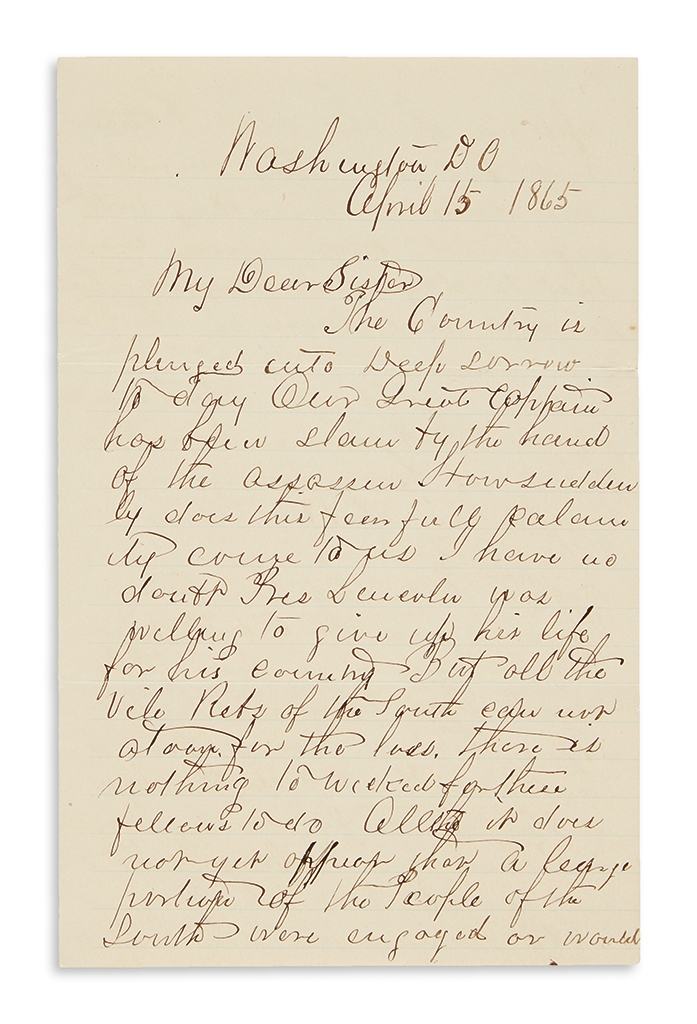 Washington D C
April 15 1865
My Dear Sister
The Country is
plunged into Deep sorrow
to day Our Great Captain
has been slain by the hand
of the assassin How sudden
ly does this fearfully calam
ity come to us I have no
doubt Pres Lincoln was
willing to give up his life
for his country But all the
vile Rebs of the South can not
atone for the loss. there is
nothing to wicked for these
fellows to do it does
not yet appear that a large
portion of the People of the
South were engaged or would